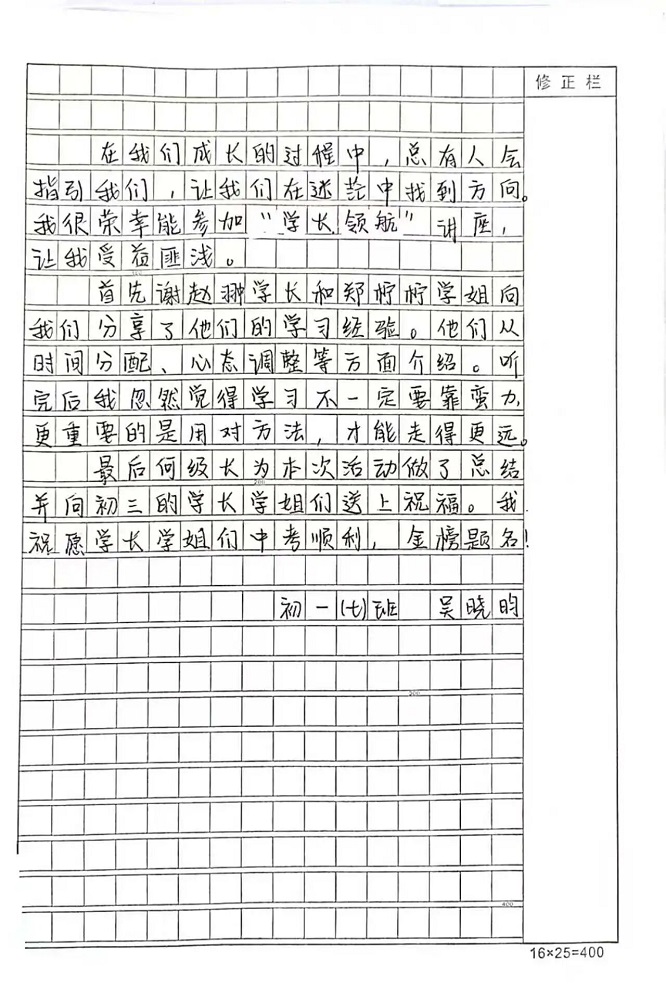 修正栏
在我们成长的过程中，总有人会
指引我们，让我们在迷茫中找到方向。
我很荣幸能参加“学长领航”讲座，
让我受益匪浅。
首先谢赵翀学长和郑柠柠学姐向
我们分享了他们的学习经验。他们从
时间分配、心态调整等方面介绍。听
完后我忽然觉得学习不一定要靠蛮力，
更重要的是用对方法，才能走得更远。
最后何级长为本次活动做了总结
并向初三的学长学姐们送上祝福。我
祝愿学长学姐们中考顺利，金榜题名！
初一(七)班 吴晓昀
400
16×25=400